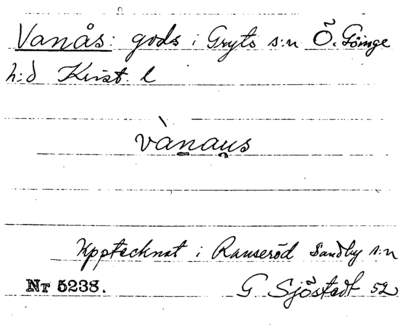 Vanås: gods i Gryts s:n Ö. Göinge
h:d Krist. l
vànaụs
Upptecknat i Ranseröd Sandby s:n
Nr 5238. G. Sjöstedt 52